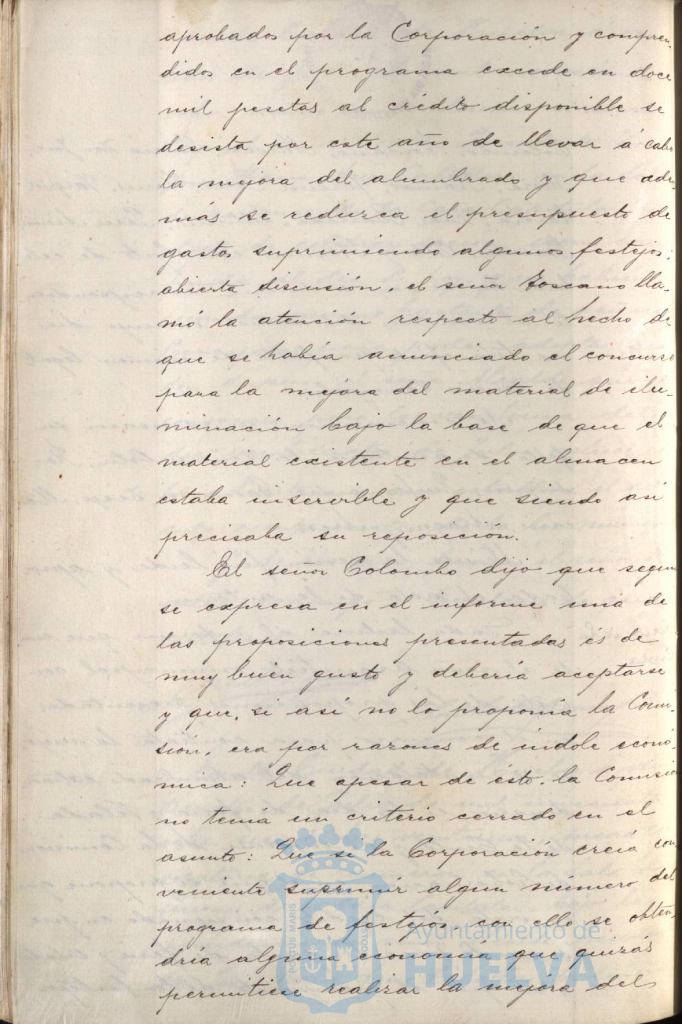 aprobados por la Corporación y compren-
didos en el programa excede en doce
mil pesetas al crédito disponible se
desista por este año de llevar á cabo
la mejora del alumbrado y que ade-
más se reduzca el presupuesto de
gastos suprimiendo algunos festejos:
abierta discusión, el señor Toscano lla-
mó la atención respecto al hecho de
que se había anunciado el concurso
para la mejora del material de ilu-
minación bajo la base de que el
material existente en el almacen
estaba inservible y que siendo así
precisaba su reposición.
El señor Colombo dijo que segun
se expresa en el informe una de
las proposiciones presentadas és de
muy buen gusto y debería aceptarse
y que, si así no lo proponía la Comi-
sión, era por razones de índole econó-
mica: Que apesar de ésto, la Comisió
no tenía un criterio cerrado en el
asunto: Que si la Corporación creía con
veniente suprimir algun número del
programa de festejos con ello se obten-
dría alguna economía que quizás
permitiese realizar la mejora del
PORTUS MARIS
Ayuntamiento de
HUELVA